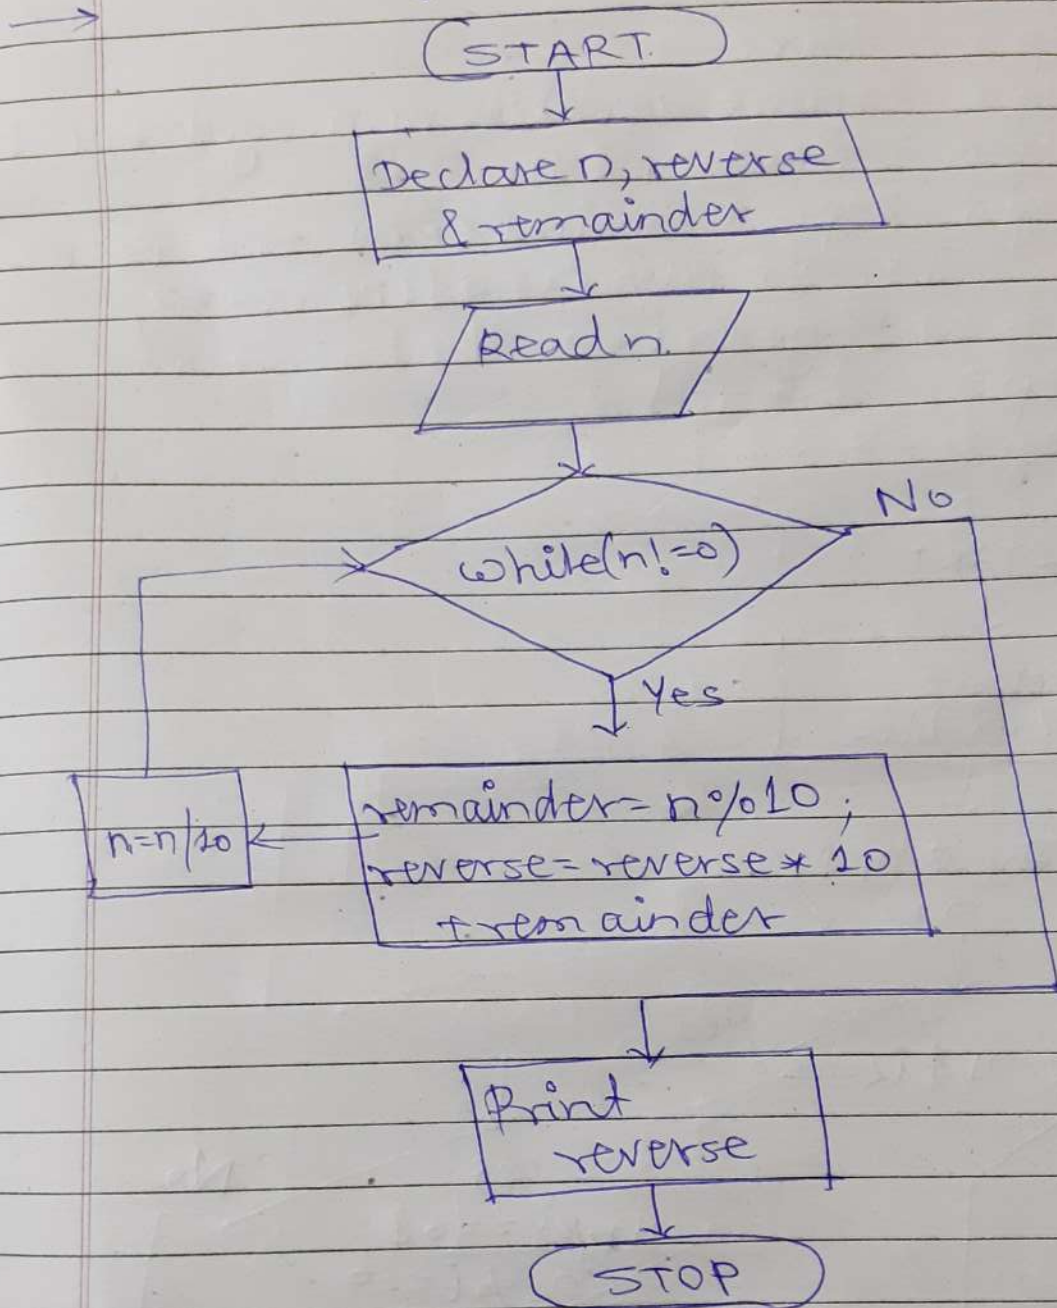 START.
Declare n, reverse
& remainder
Read n.
while(n!=0)
No
Yes
remainder= n%10;
n=n/10
reverse=reverse* 10
+remainder
Print
reverse
STOP